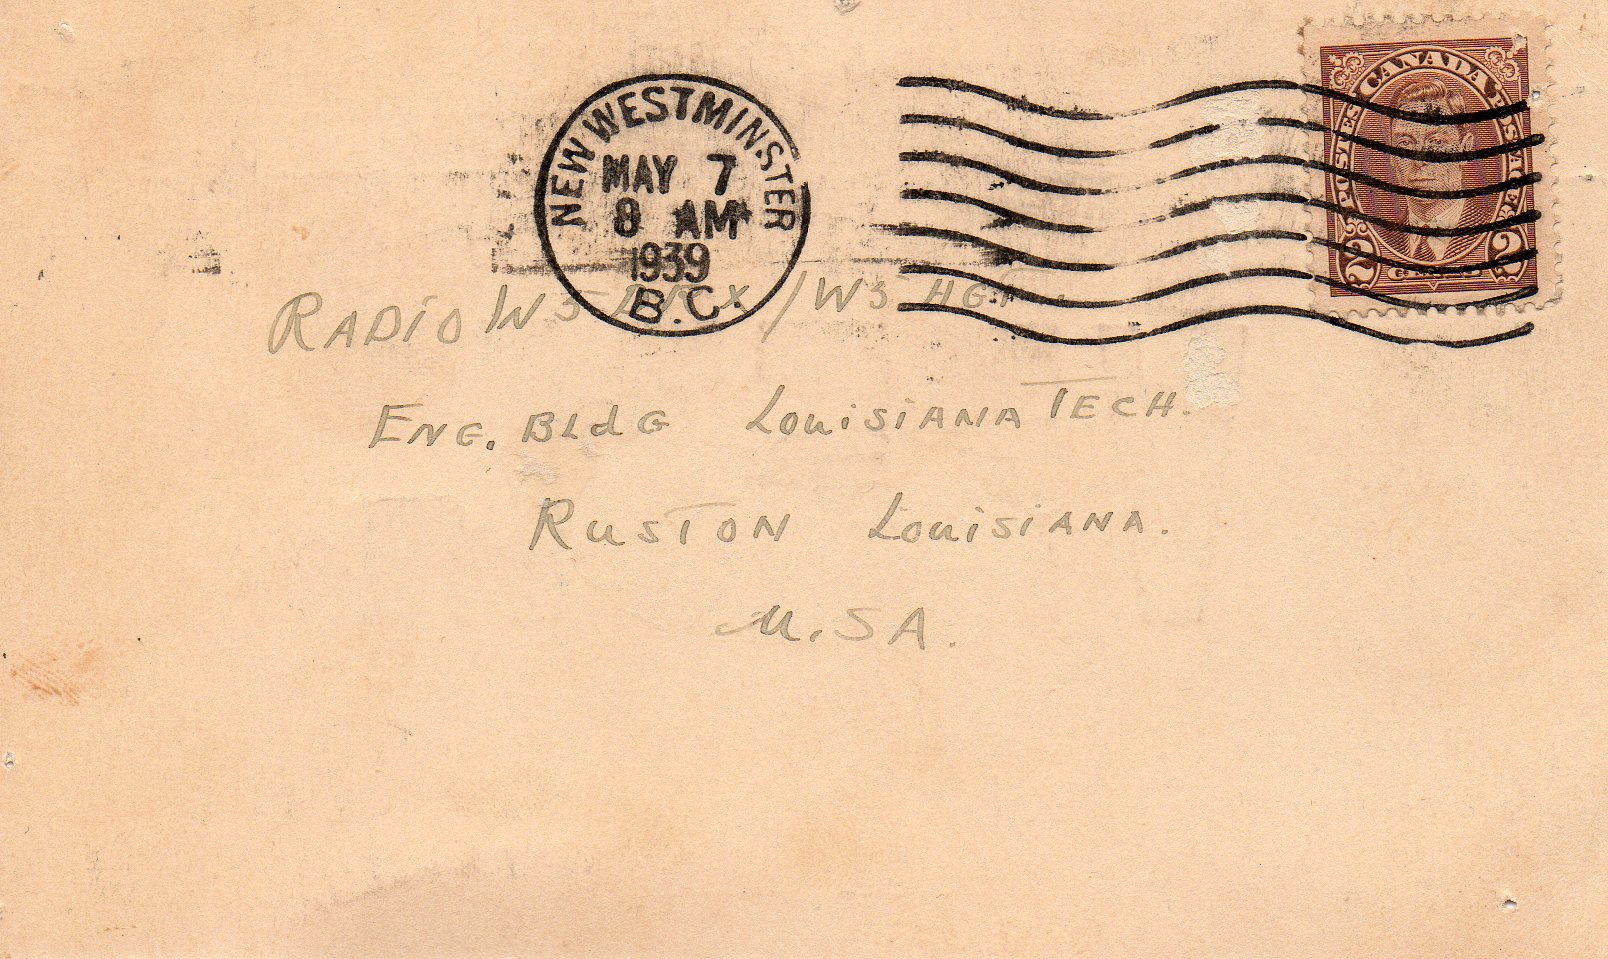 NEW WESTMINSTER
MAY 7
8 AM
1939
B.C.
CANADA
POSTES
POSTAGE
2 2
RADIO
ENG. BLdG LOuiSiANA TECH.
RuSTON LOuiSiANA.
U.SA.